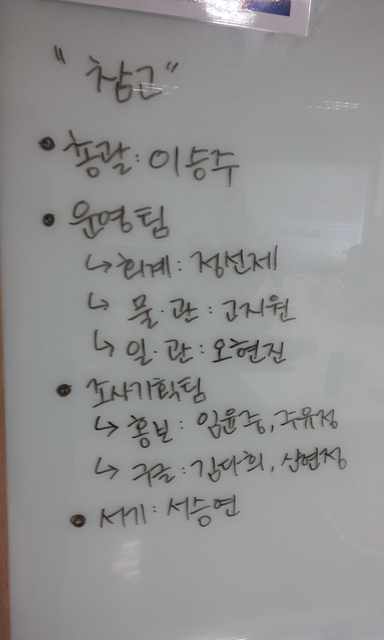 "참근"
• 총괄: 이승주
• 운영팀
↳ 회계: 정선제
↳ 물·관: 고지원
↳ 일·관: 오현진
• 조사기획팀
↳ 홍보: 임윤중, 주유정
↳ 구글: 김다희, 신현정
• 서기: 서승연